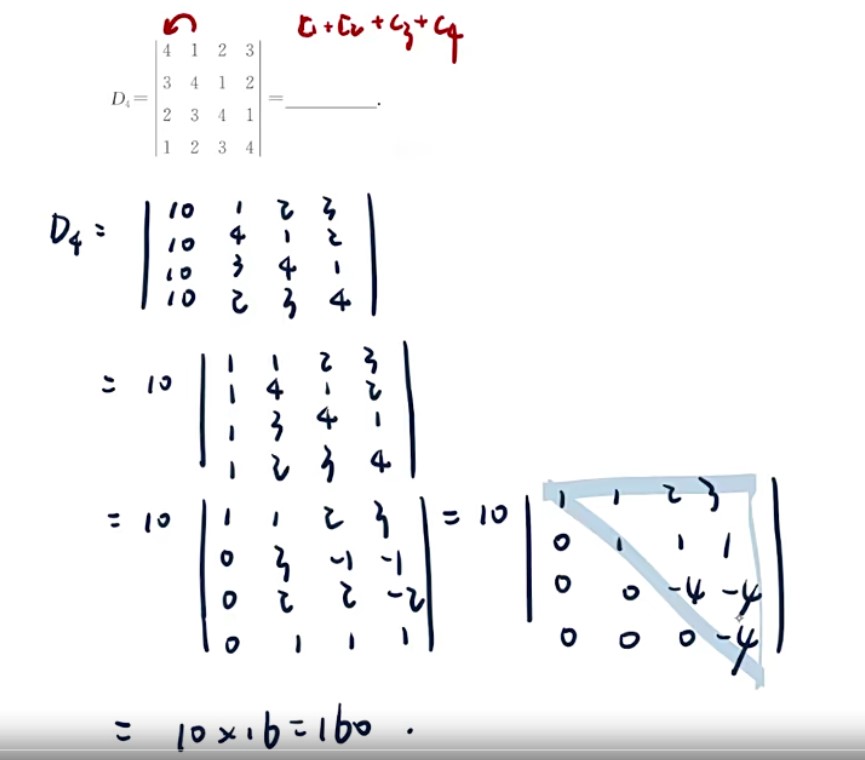 C₁+C₂+C₃+C₄
4 1 2 3
3 4 1 2
D₄= = ______.
2 3 4 1
1 2 3 4
10 1 2 3
D₄ = 10 4 1 2
10 3 4 1
10 2 3 4
1 1 2 3
= 10 1 4 1 2
1 3 4 1
1 2 3 4
= 10 1 1 2 3
0 3 -1 -1
0 2 2 -2
0 1 1 1
= 10 1 1 2 3
0 1 1 1
0 0 -4 -4
0 0 0 -4
= 10×16=160.